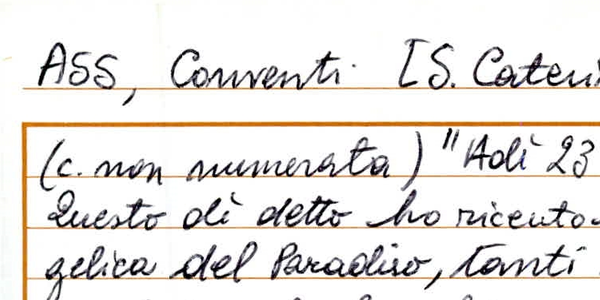 ASS, Conventi [S. Cateri
(c. non numerata) "Adì 23
Questo dì detto ho ricevuto
gelica del Paradiso, tanti